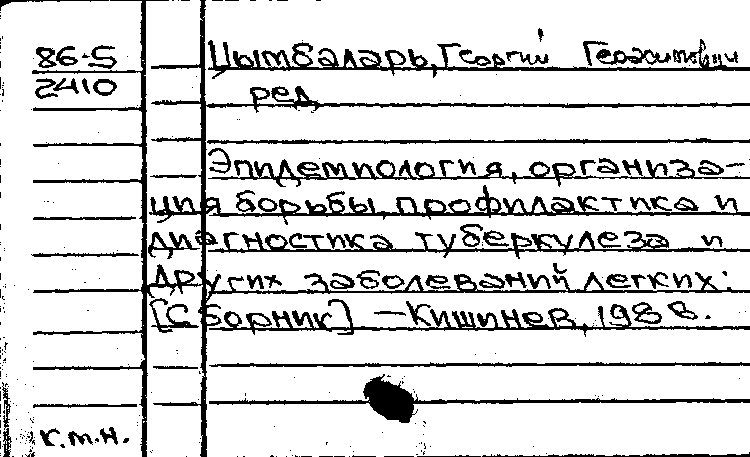 86-5
2410
Цымбаларь, Георгий
ред.
Эпидемиология, организа-
ция борьбы, профилактика и
диагностика туберкулеза и
других заболеваний легких:
[Сборник] —Кишинев, 1988.
к.т.н.